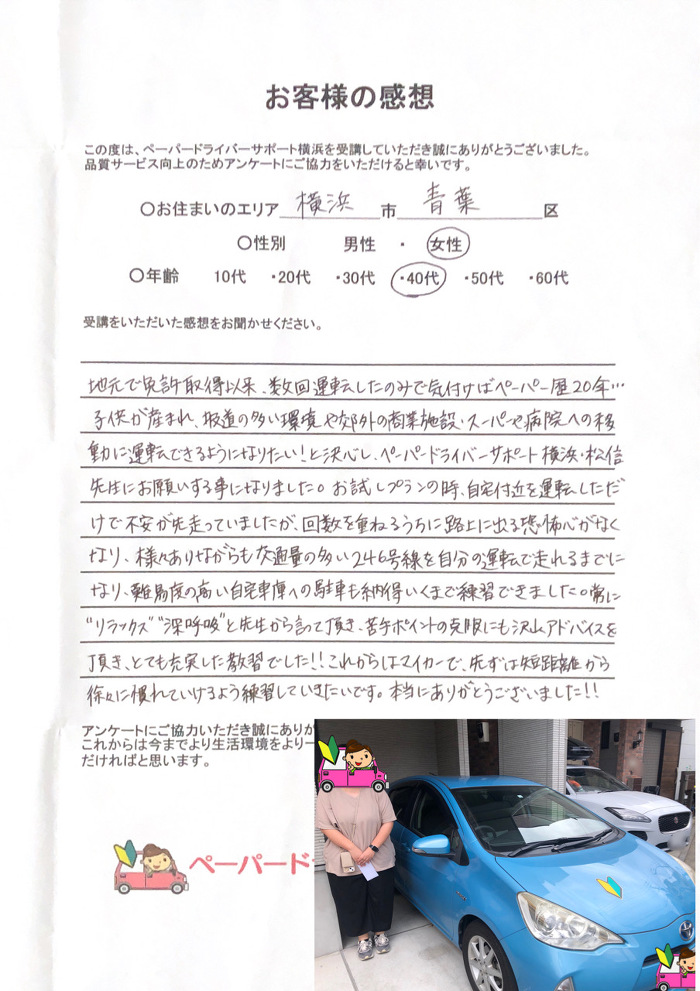 お客様の感想
この度は、ペーパードライバーサポート横浜を受講していただき誠にありがとうございました。
品質サービス向上のためアンケートにご協力をいただけると幸いです。
〇お住まいのエリア 横浜 市 青葉 区
〇性別 男性 ・ 女性
〇年齢 10代 ・20代 ・30代 ・40代 ・50代 ・60代
受講をいただいた感想をお聞かせください。
地元で免許取得以来、数回運転したのみで気付けばペーパー歴20年…
子供が産まれ、坂道の多い環境や郊外の商業施設・スーパーや病院への移
動に運転できるようになりたい!と決心し、ペーパードライバーサポート横浜・松信
先生にお願いする事になりました。お試しプランの時、自宅付近を運転しただ
けで不安が先走っていましたが、回数を重ねるうちに路上に出る恐怖心がなく
なり、様々ありながらも交通量の多い246号線を自分の運転で走れるまでに
なり、難易度の高い自宅車庫への駐車も納得いくまで練習できました。常に
"リラックス""深呼吸"と先生から言って頂き、苦手ポイントの克服にも沢山アドバイスを
頂き、とても充実した教習でした!!これからはマイカーで、先ずは短距離から
徐々に慣れていけるよう練習していきたいです。本当にありがとうございました!!
アンケートにご協力いただき誠にありが
これからは今までより生活環境をより一
だければと思います。
ペーパード